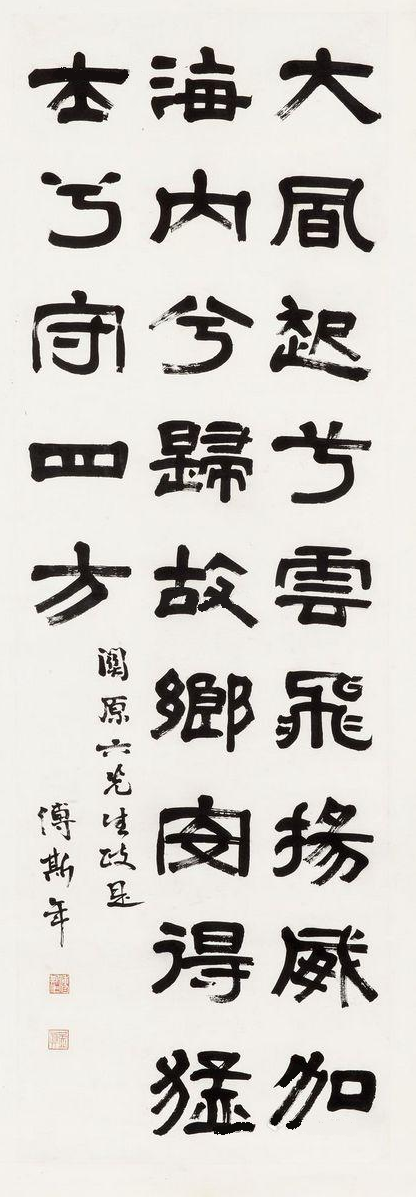 大風起兮雲飛揚威加
海内兮歸故鄉安得猛
士兮守四方
原六先生政是
傅斯年